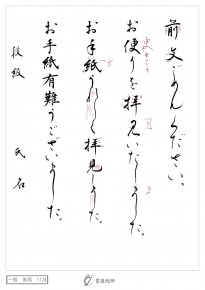 前文ごめんください。
お便りを拝見いたしました。
お手紙うれしく拝見しました。
お手紙有難うございました。
段級 氏名
一般 実用 11月
書道秋峰